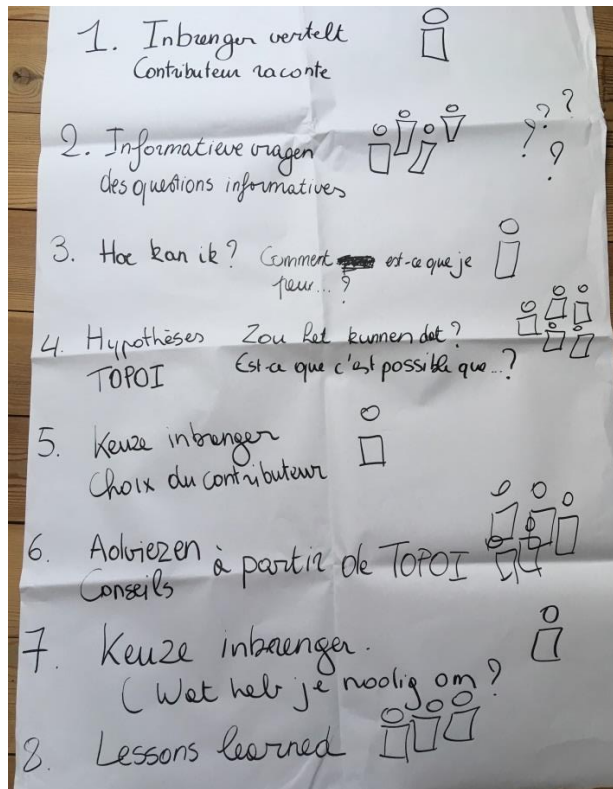 1. Inbrenger vertelt
Contributeur raconte
? ? ?
2. Informatieve vragen
des questions informatives
3. Hoe kan ik? Comment est-ce que je
peux...?
4. Hypothèses Zou het kunnen dat?
TOPOI Est-ce que c'est possible que...?
5. Keuze inbrenger
Choix du contributeur
6. Adviezen à partir de TOPOI
Conseils
7. Keuze inbrenger.
(Wat heb je nodig om?
8. Lessons learned